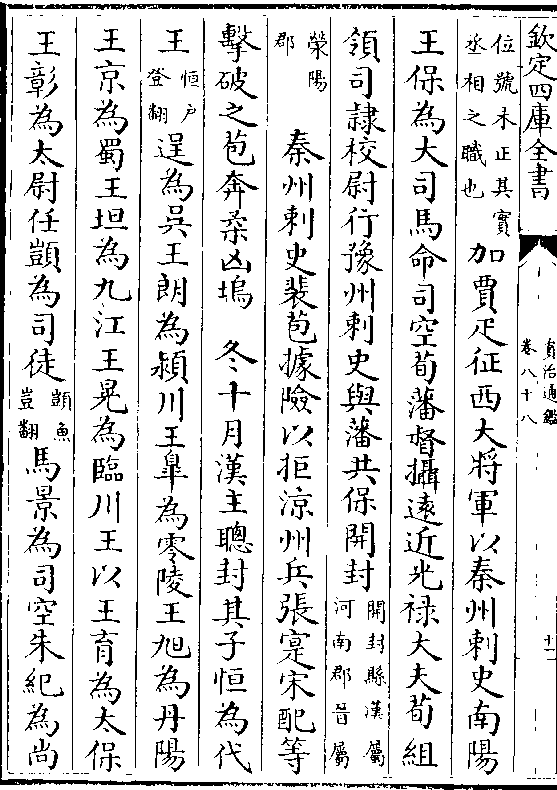 欽定四庫全書
資治通鑑
卷八十八
十一
位號未正其實
丞相之職也
加賈疋征西大將軍以秦州刺史南陽
王保為大司馬命司空荀藩督攝遠近光禄大夫荀組
領司隸校尉行豫州刺史與藩共保開封
開封縣漢屬
河南郡晉屬
榮陽
郡
秦州刺史裴苞據險以拒涼州兵張寔宋配等
擊破之苞奔桑凶塢 冬十月漢主聰封其子恒為代
王
恒户
登翻
逞為吳王朗為潁川王臯為零陵王旭為丹陽
王京為蜀王坦為九江王晃為臨川王以王育為太保
王彰為太尉任顗為司徒
顗魚
豈翻
馬景為司空朱紀為尚